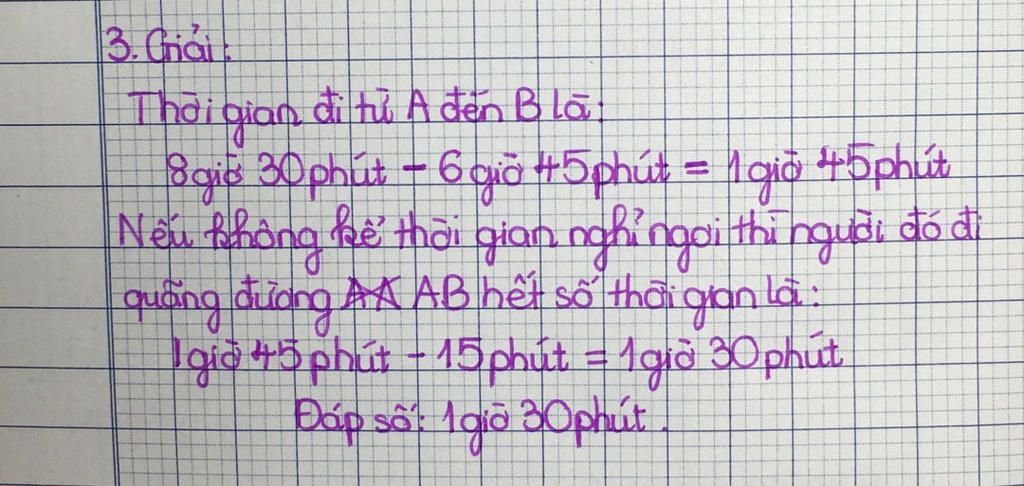 3. Giải:
Thời gian đi từ A đến B là:
8 giờ 30 phút - 6 giờ 45 phút = 1 giờ 45 phút
Nếu không kể thời gian nghỉ ngơi thì người đó đi
quãng đường AB hết số thời gian là:
1 giờ 45 phút - 15 phút = 1 giờ 30 phút
Đáp số: 1 giờ 30 phút.